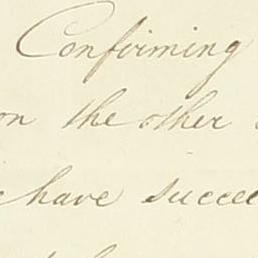 Confirming
on the other
have succee